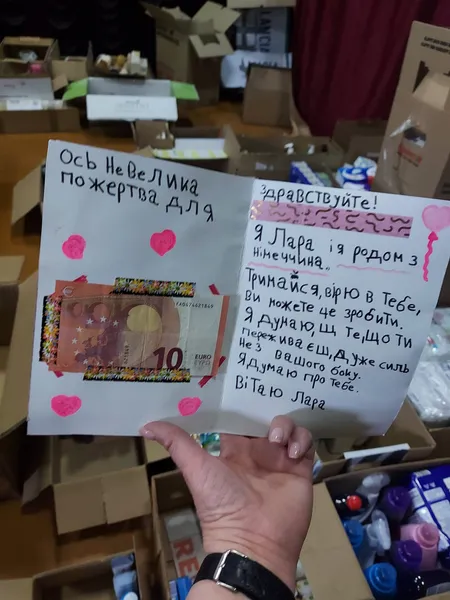 ОСЬ НЕВЕЛИКА
ПОЖЕРТВА ДЛЯ
10
EURO
ЗДРАВСТВУЙТЕ!
Я ЛАРА І Я РОДОМ З
НІМЕЧЧИНА.
ТРИМАЙСЯ, ВІРЮ В ТЕБЕ,
ВИ МОЖЕТЕ ЦЕ ЗРОБИТИ.
Я ДУМАЮ, Щ ТЕ, ЩО ТИ
ПЕРЕЖИВАЄШ, Д,УЖЕ СИЛЬ
НЕ З ВАШОГО БОКУ.
Я ДУМАЮ ПРО ТЕБЕ.
ВІТАЮ ЛАРА